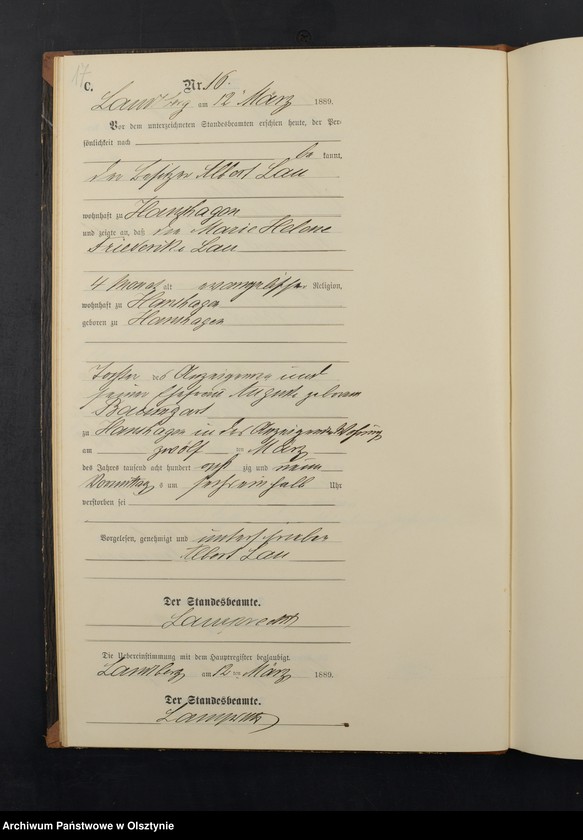 17
C.
Nr. 16.
Landsberg am 12 März 1889.
Vor dem unterzeichneten Standesbeamten erschien heute, der Per-
sönlichkeit nach
be kannt,
der Besitzer Albert Lau
wohnhaft zu Hanshagen
und zeigte an, daß die Marie Helene
Friederike Lau
4 Monat alt evangelischer Religion,
wohnhaft zu Hanshagen
geboren zu Hanshagen
Tochter des Anzeigenden und
seiner Ehefrau Auguste geborene
Baumgart
zu Hanshagen in des Anzeigenden Wohnung
am zwölf ten März
des Jahres tausend acht hundert acht zig und neun
Vormittags um sechseinhalb Uhr
verstorben sei
Vorgelesen, genehmigt und unterschrieben
Albert Lau
Der Standesbeamte.
Lamprecht
Die Uebereinstimmung mit dem Hauptregister beglaubigt.
Landsberg am 12 ten März 1889.
Der Standesbeamte.
Lamprecht
Archiwum Państwowe w Olsztynie